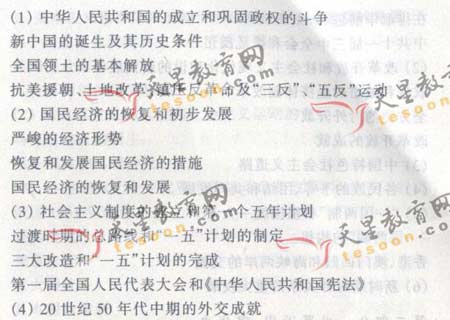 (1) 中华人民共和国的成立和巩固政权的斗争
新中国的诞生及其历史条件
全国领土的基本解放
抗美援朝、土地改革、镇压反革命及“三反”、“五反”运动
(2) 国民经济的恢复和初步发展
严峻的经济形势
恢复和发展国民经济的措施
国民经济的恢复和发展
(3) 社会主义制度的建立和第一个五年计划
过渡时期的总路线和“一五”计划的制定
三大改造和“一五”计划的完成
第一届全国人民代表大会和《中华人民共和国宪法》
(4) 20 世纪 50 年代中期的外交成就
天星教育网
tesoon.com
天星教育网
tesoon.com
天星教育网
tesoon.com
天星教育网
tesoon.com